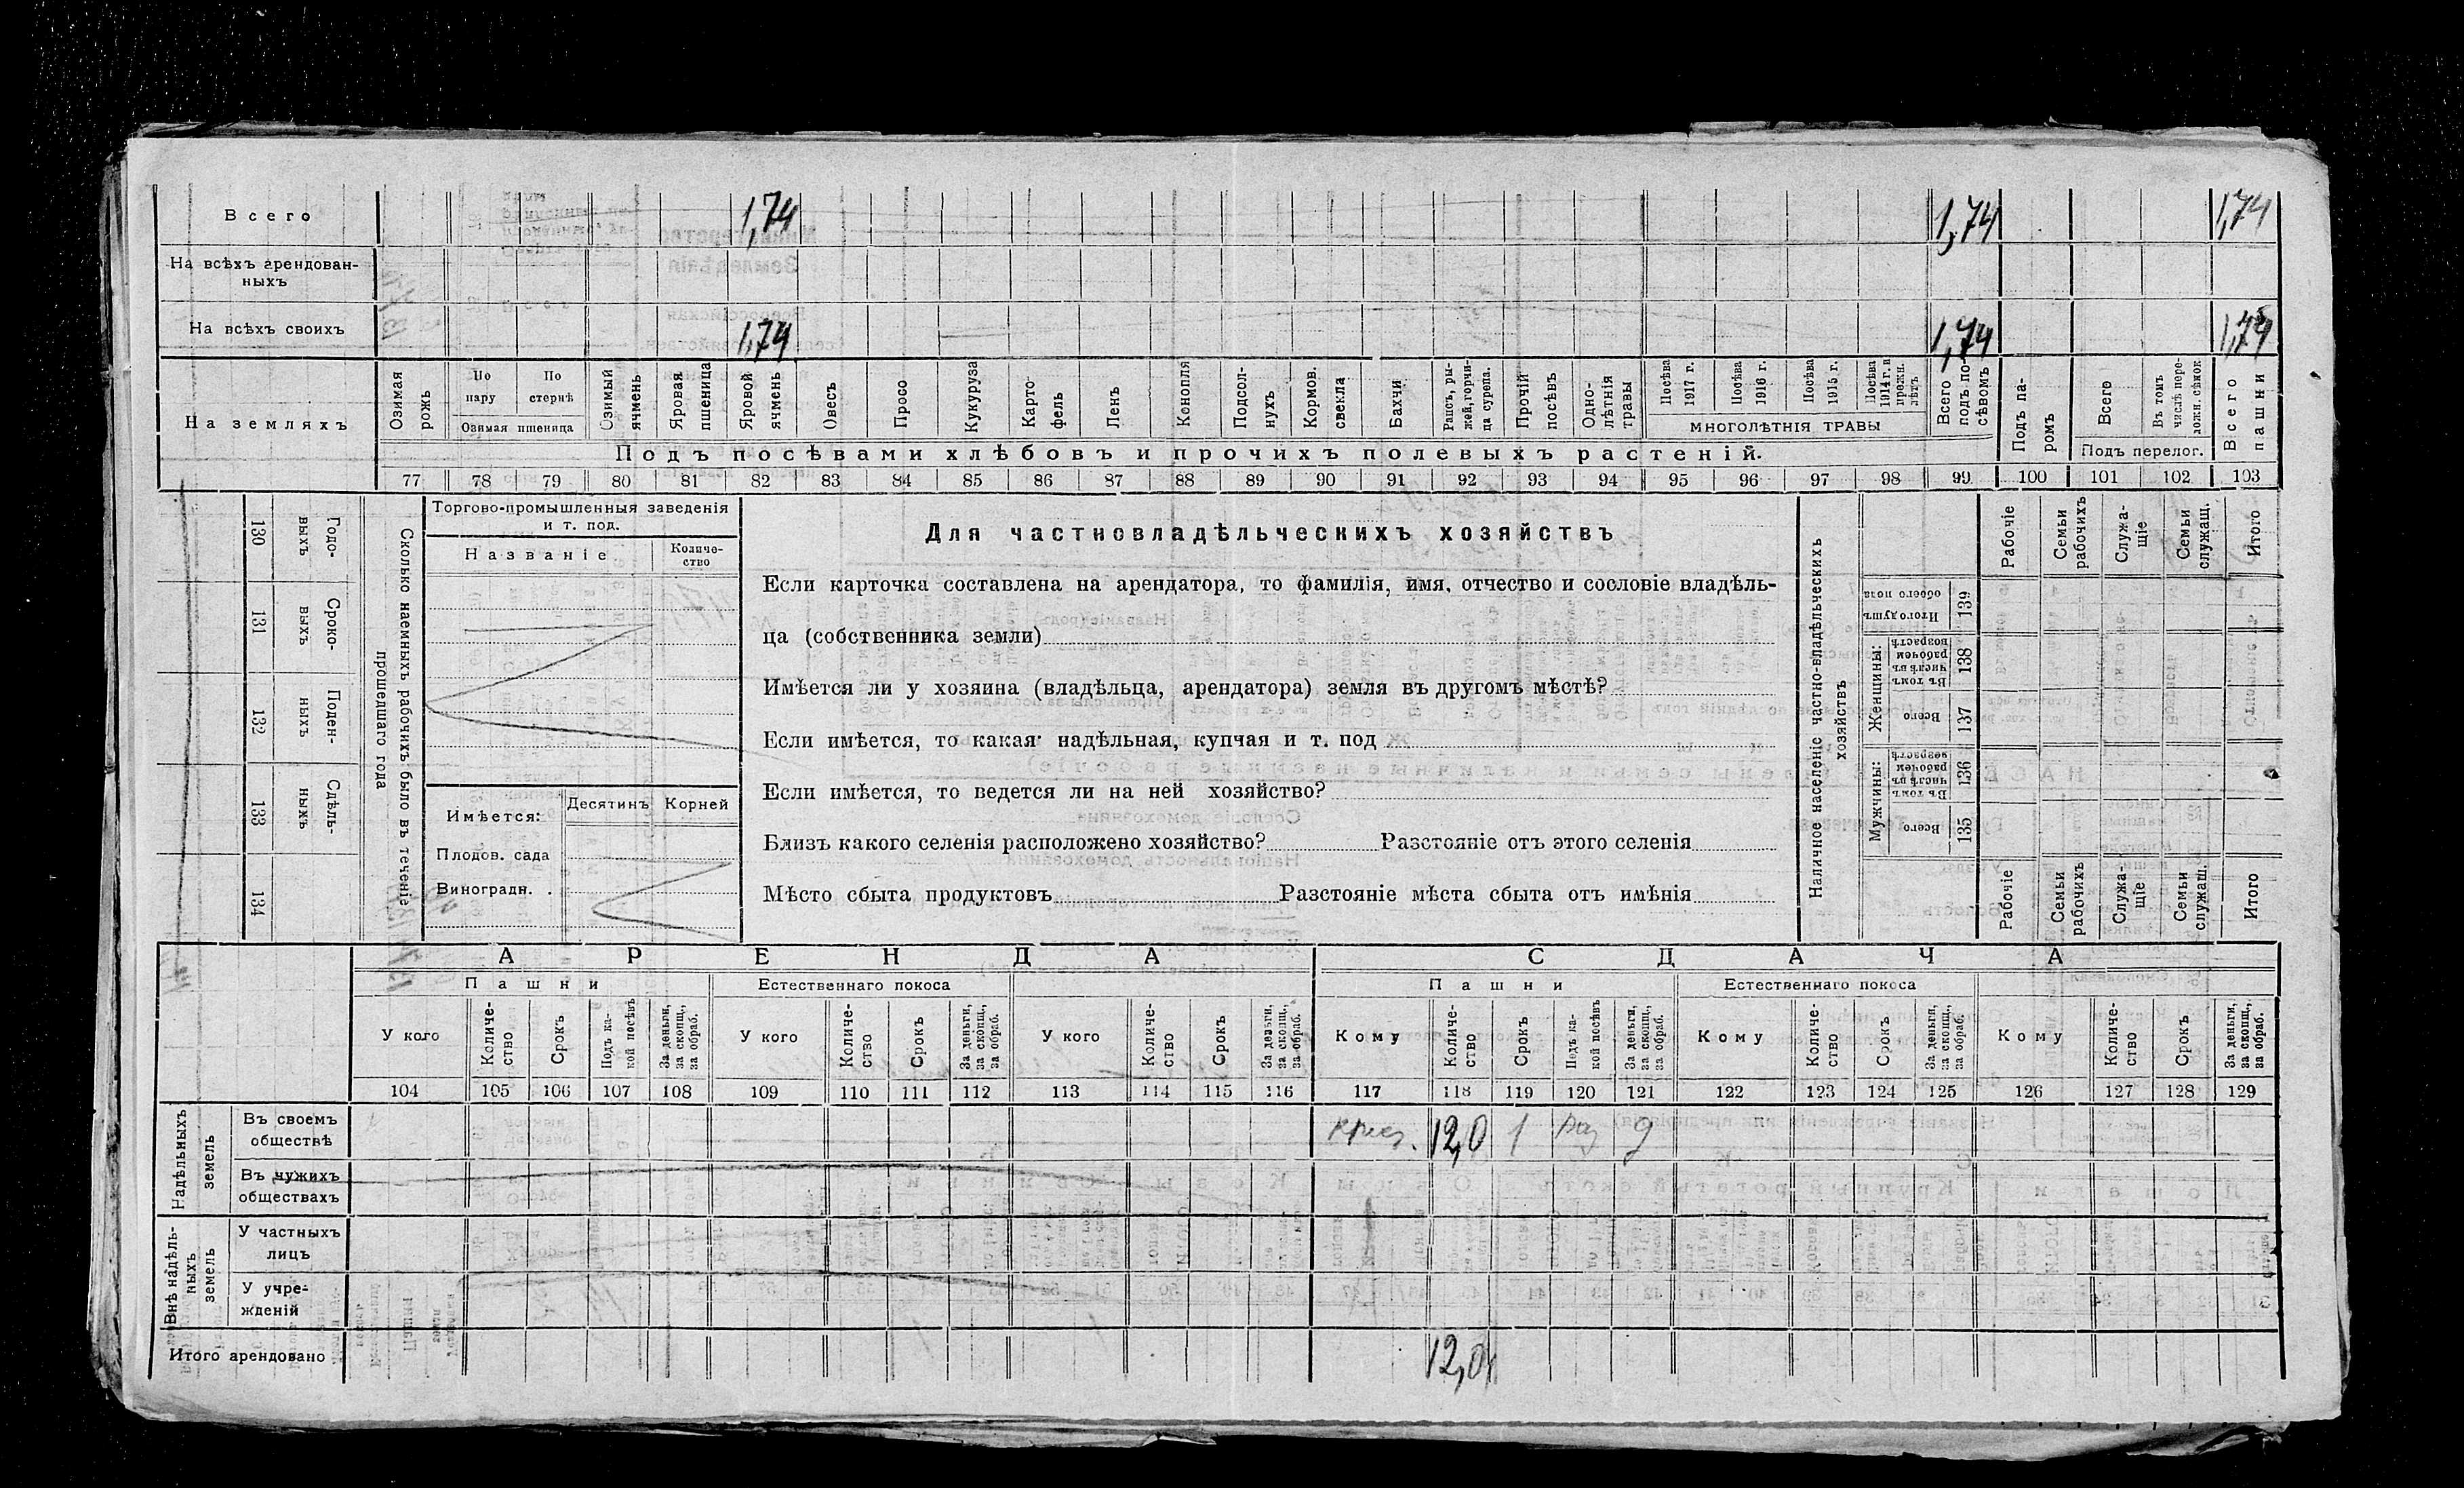 Всего 1,74 1,74 1,74
На всѣхъ арендован-
ныхъ
На всѣхъ своихъ 1,74 1,74 1,74
На земляхъ
Озимая рожь
По пару
По стернѣ
Озимая пшеница
Озимый ячмень
Яровая пшеница
Яровой ячмень
Овесъ
Просо
Кукуруза
Карто-
фель
Ленъ
Конопля
Подсол-
нухъ
Кормов. свекла
Бахчи
Рапсъ, ры-
жей, горчи-
ца сурепа.
Прочій посѣвъ
Одно-
лѣтнія травы
Посѣва 1917 г.
Посѣва 1916 г.
Посѣва 1915 г.
Посѣва 1914 г. и прежн. лѣтъ
МНОГОЛѢТНІЯ ТРАВЫ
Всего подъ по-
сѣвомъ
Подъ па-
ромъ
Всего
Въ томъ числѣ пере-
ложн. сѣнок
Подъ перелог.
Всего пашни
Подъ посѣвами хлѣбовъ и прочихъ полевыхъ растеній.
77 78 79 80 81 82 83 84 85 86 87 88 89 90 91 92 93 94 95 96 97 98 99 100 101 102 103
130 Годо-
выхъ
131 Сроко-
выхъ
132 Поден-
ныхъ
133 Сдѣль-
ныхъ
134
Сколько наемныхъ рабочихъ было въ теченіе
прошедшаго года
Торгово-промышленныя заведенія
и т. под.
Названіе.
Количе-
ство
Имѣется:
Десятинъ
Корней
Плодов. сада
Виноградн. .
Для частновладѣльческихъ хозяйствъ
Если карточка составлена на арендатора, то фамилія, имя, отчество и сословіе владѣль-
ца (собственника земли)
Имѣется ли у хозяина (владѣльца, арендатора) земля въ другомъ мѣстѣ?
Если имѣется, то какая надѣльная, купчая и т. под
Если имѣется, то ведется ли на ней хозяйство?
Близъ какого селенія расположено хозяйство? Разстояніе отъ этого селенія
Мѣсто сбыта продуктовъ Разстояніе мѣста сбыта отъ имѣнія
Наличное населеніе частно-владѣльческихъ
хозяйствъ
Рабочіе
Семьи рабочихъ
Служа-
щіе
Семьи служащ.
Итого
Итого душъ обоего пола 139
Женщины:
Въ томъ числѣ въ рабочем возрастѣ 138
Всего 137
Мужчины:
Въ томъ числѣ въ рабочем возрастѣ 136
Всего 135
Рабочіе
Семьи рабочихъ
Служа-
щіе
Семьи служащ.
Итого
АРЕНДА
СДАЧА
Пашни
Естественнаго покоса
Пашни
Естественнаго покоса
У кого
Количе-
ство
Срокъ
Подъ ка-
кой посѣвъ
За деньги, за скопщ., за обраб.
У кого
Количе-
ство
Срокъ
За деньги, за скопщ., за обраб.
У кого
Количе-
ство
Срокъ
За деньги, за скопщ., за обраб.
Кому
Количе-
ство
Срокъ
Подъ ка-
кой посѣвъ
За деньги, за скопщ., за обраб.
Кому
Количе-
ство
Срокъ
За деньги, за скопщ., за обраб.
Кому
Количе-
ство
Срокъ
За деньги, за скопщ., за обраб.
104 105 106 107 108 109 110 111 112 113 114 115 116 117 118 119 120 121 122 123 124 125 126 127 128 129
Надѣльныхъ земель
Въ своемъ
обществѣ
12,0 1
Въ чужихъ
обществахъ
Внѣ надѣль-
ныхъ земель
У частныхъ
лицъ
У учре-
жденій
Итого арендовано 12,0